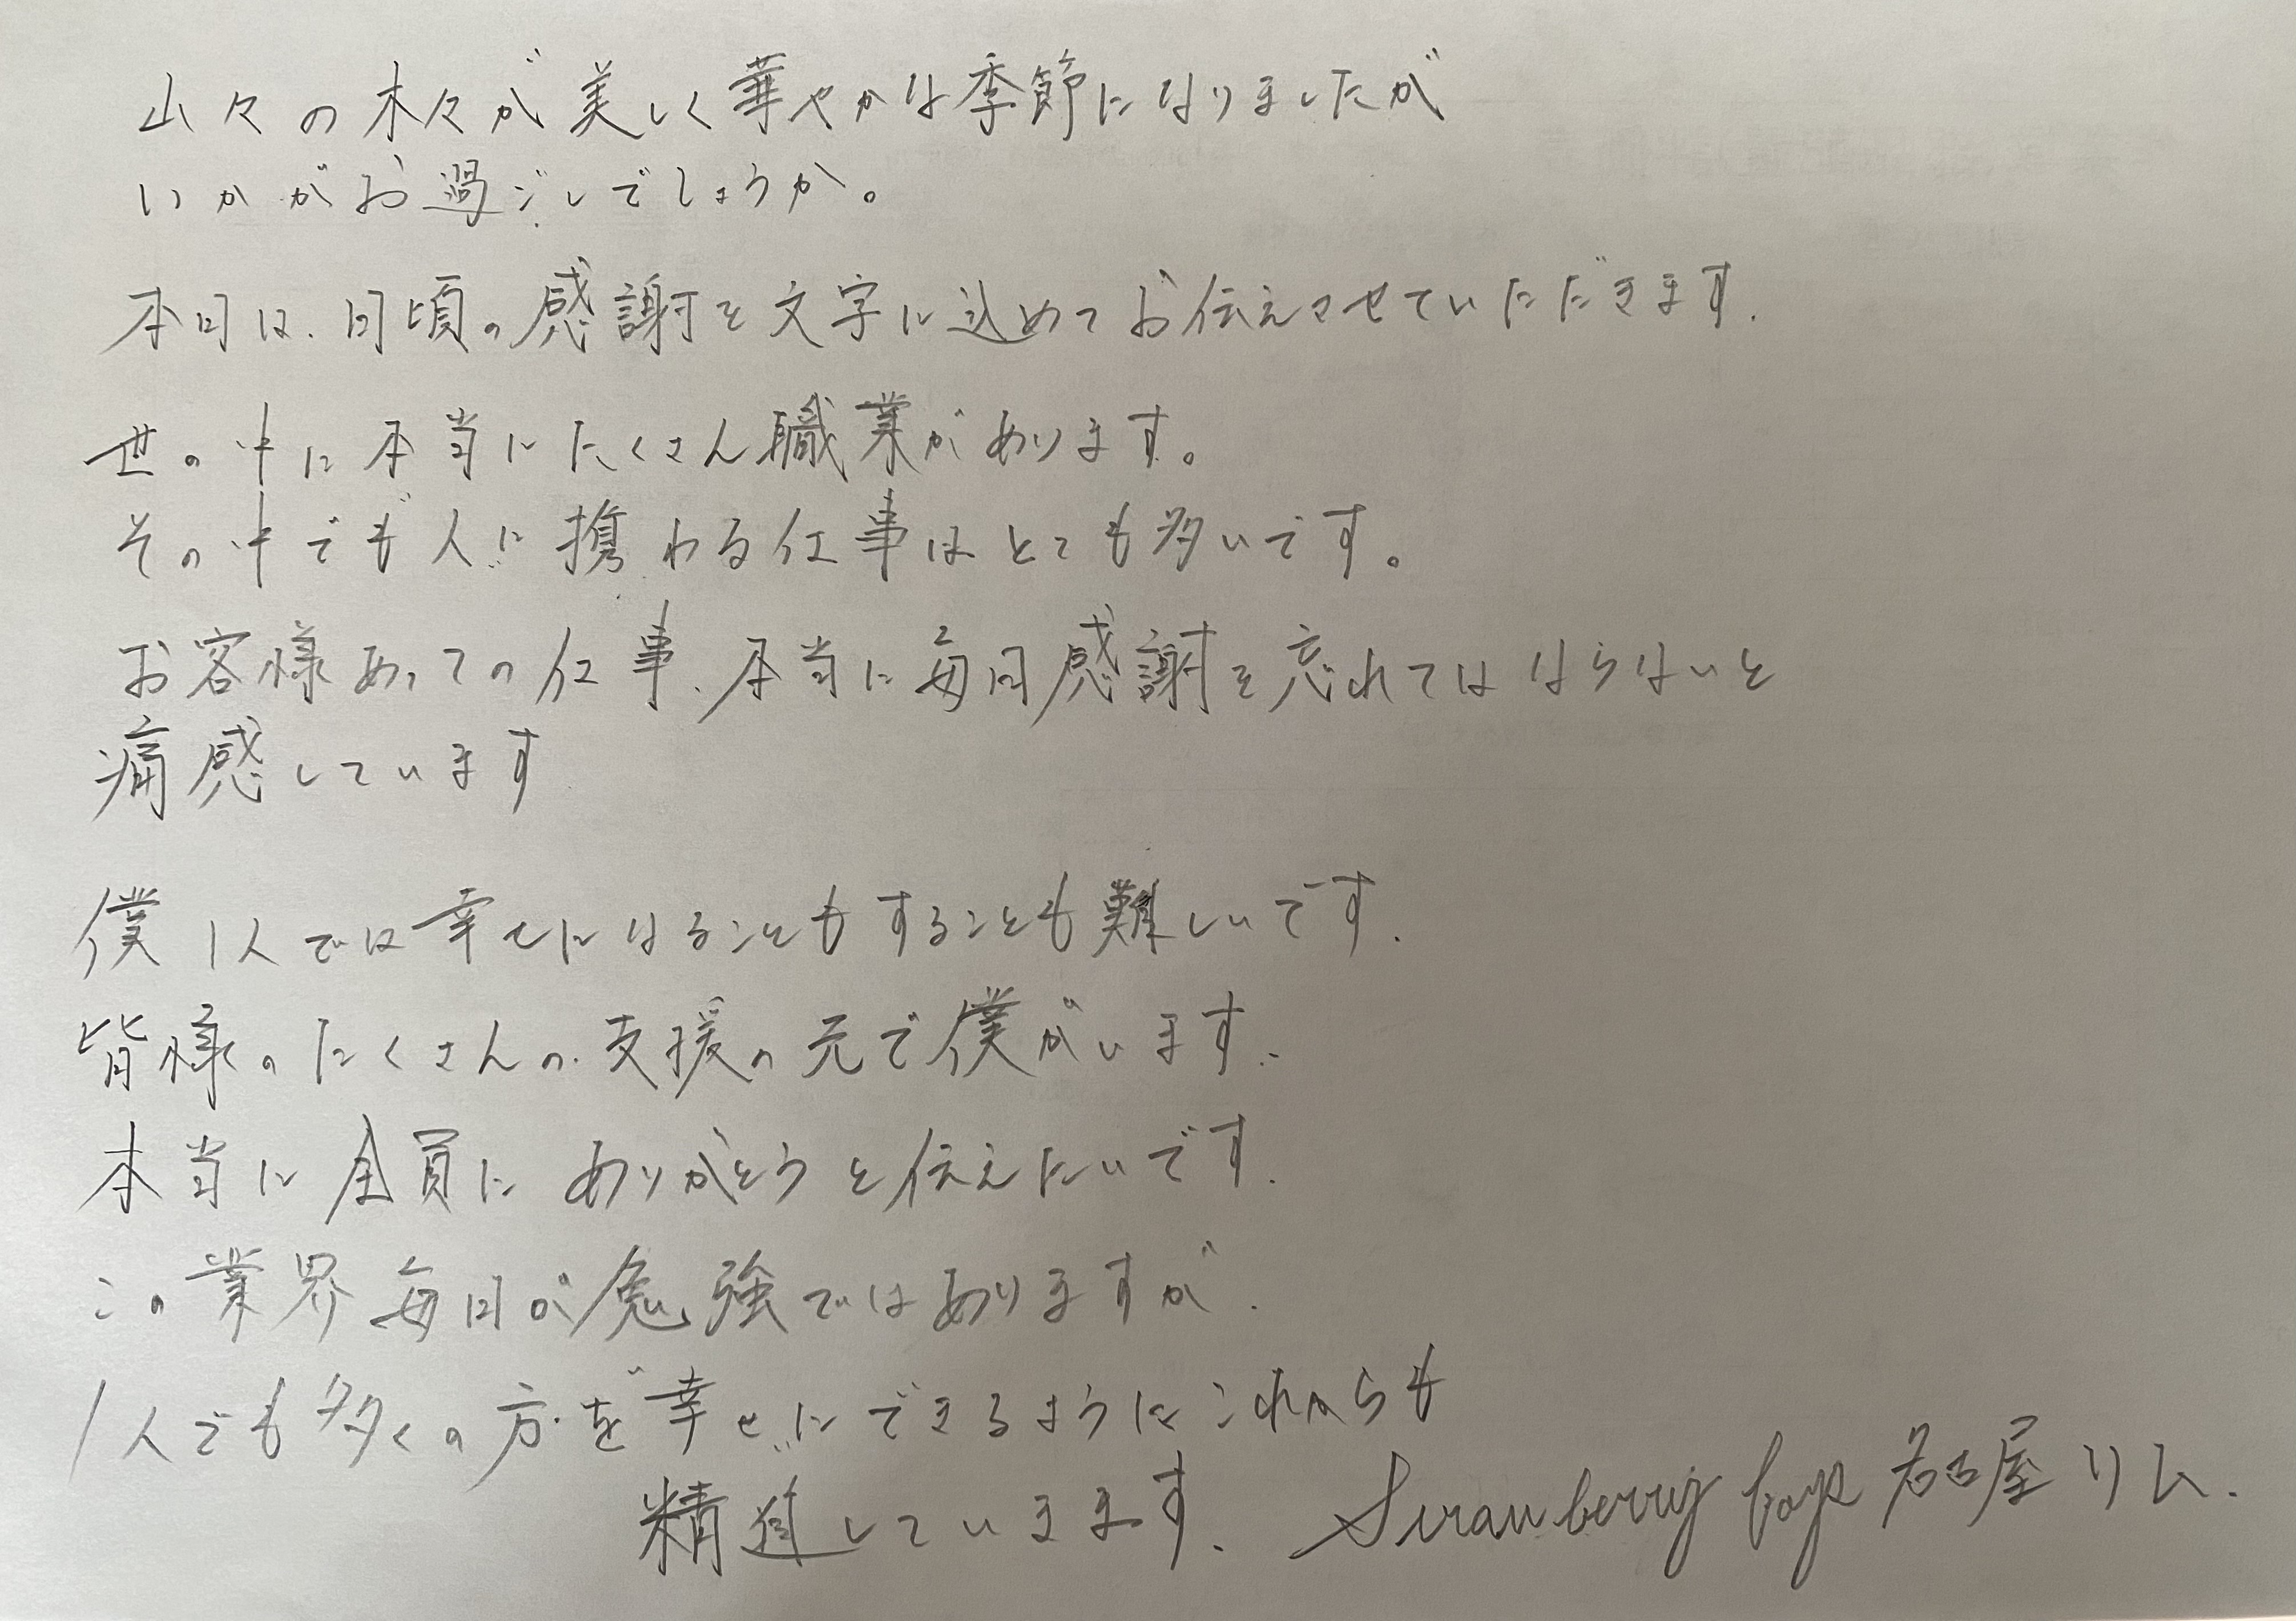 山々の木々が美しく華やかな季節になりましたが
いかがお過ごしでしょうか。
本日は、日頃の感謝を文字に込めてお伝えさせていただきます.
世の中に本当にたくさん職業があります。
その中でも人に携わる仕事はとても多いです。
お客様あっての仕事、本当に毎日感謝を忘れてはならないと
痛感しています
僕1人では幸せになることもすることも難しいです.
皆様のたくさんの支援の元で僕がいます.
本当に全員にありがとうと伝えたいです.
この業界毎日が勉強ではありますが.
1人でも多くの方を幸せにできるようにこれからも
精進していきます. Strawberry boys 名古屋 リム.